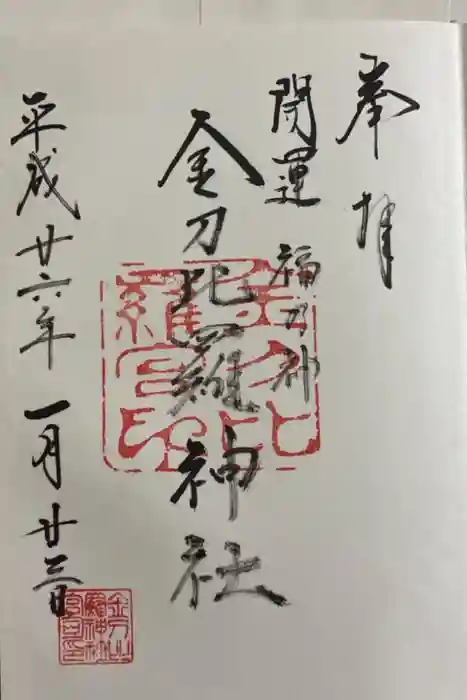 奉拝
開運 福乃神
金刀比羅神社
平成廿六年一月廿三日
金刀比
羅宮印
金刀比
羅神社